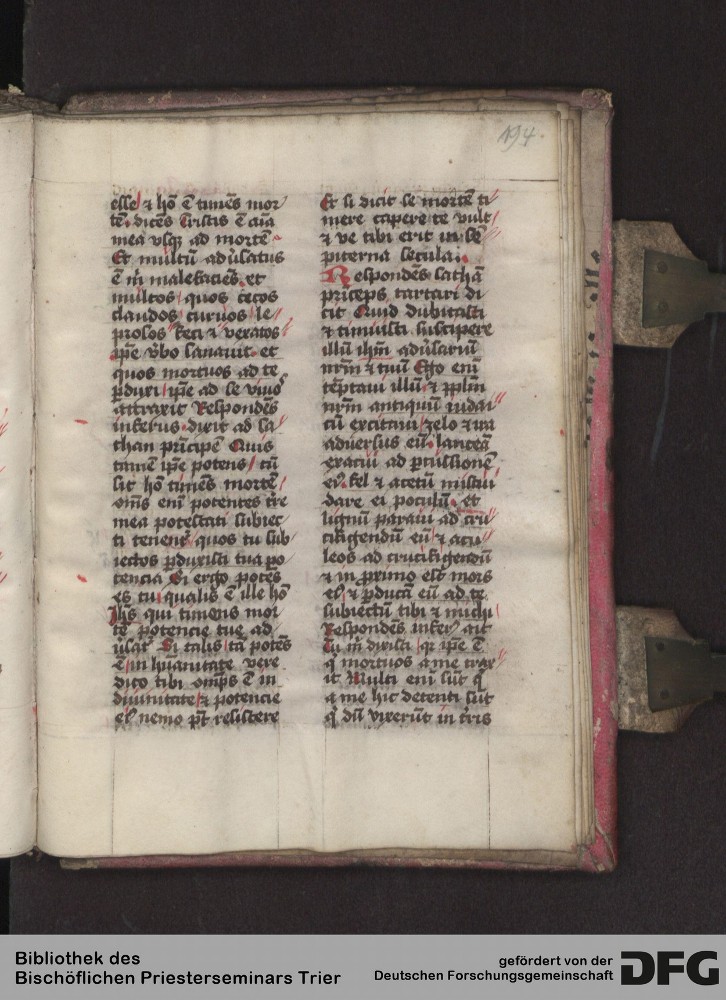 194.
esse / ⁊ hõ ẽ timẽs mor
tẽ. dicẽs Tristis ẽ aĩa
mea vsq̃ ad mortẽ
Et multũ adũsatus
ẽ m̃ malefaciẽs. et
multos / quos cecos
claudos / curuos / le
prosos feci ⁊ vexatos
ip̃e v̾bo sanauit. et
quos mortuos ad te
p̱duxi / ip̃e ad se viuos
attraxit Respondẽs
inferus. dixit ad sa
than prĩcipẽ Quis
tamẽ ip̃e potens / cũ
sit hõ timẽs mortẽ
om̃s enĩ potentes tr̃e
mea potestati subiec
ti tenent̾ quos tu sub
iectos p̱duxisti tua po
tencia Si ergo potẽs
es tu / qualis ẽ ille hõ
Jhũs qui timens mor
tẽ potencie tue ad
ũsat̾ Si talis / tã potẽs
ẽ / in hũanitate vere
dico tibi om̃ps ẽ in
diuinitate / ⁊ potencie
eiꝰ nemo pt̃ resistere
Et si dicit se mortẽ ti
mere capere te vult /
⁊ ve tibi erit in sẽ
piterna secula.
Respondẽs sathã
prĩceps tartari di
cit Quid dubitasti
⁊ timuisti suscipere
illũ ihm̃ adũsariũ
nr̃m ⁊ tuũ Ego enĩ
tẽptaui illũ ⁊ pplm̃
nr̃m antiquũ iudai
cũ excitaui / zelo ⁊ ira
aduersus eũ. lanceã
exacui ad p̱cussionẽ
eiꝰ. fel ⁊ acetũ miscui
dare ei poculũ. et
lignũ paraui ad cru
cifigendũ eũ / ⁊ acu
leos ad crucifigendũ
⁊ in proximo est mors
eiꝰ ⁊ p̱ducã eũ ad te
subiectũ tibi ⁊ michi
Respondẽs inferꝰ ait
Tu m̃ dixisti / qꝛ ip̃e ẽ
q̃ mortuos a me trax
it Multi enĩ sũt q̃
a me hic detenti sũt
q̃ dũ vixerũt in tr̃is
Bibliothek des
Bischöflichen Priesterseminars Trier
gefördert von der
Deutschen Forschungsgemeinschaft
DFG